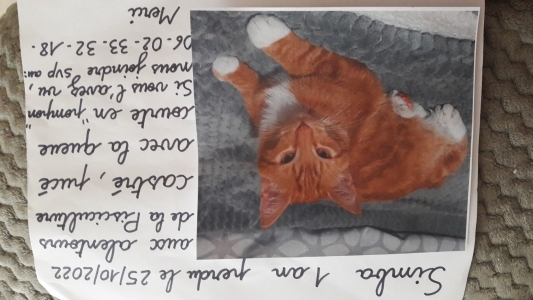 Simba 1 an perdu le 25/10/2022
aux alentours
de la Pisciculture
castré, pucé
avec la queue
courte en "pompon"
Si vous l'avez vu,
nous joindre svp au:
06-02-33-32-18.
Merci